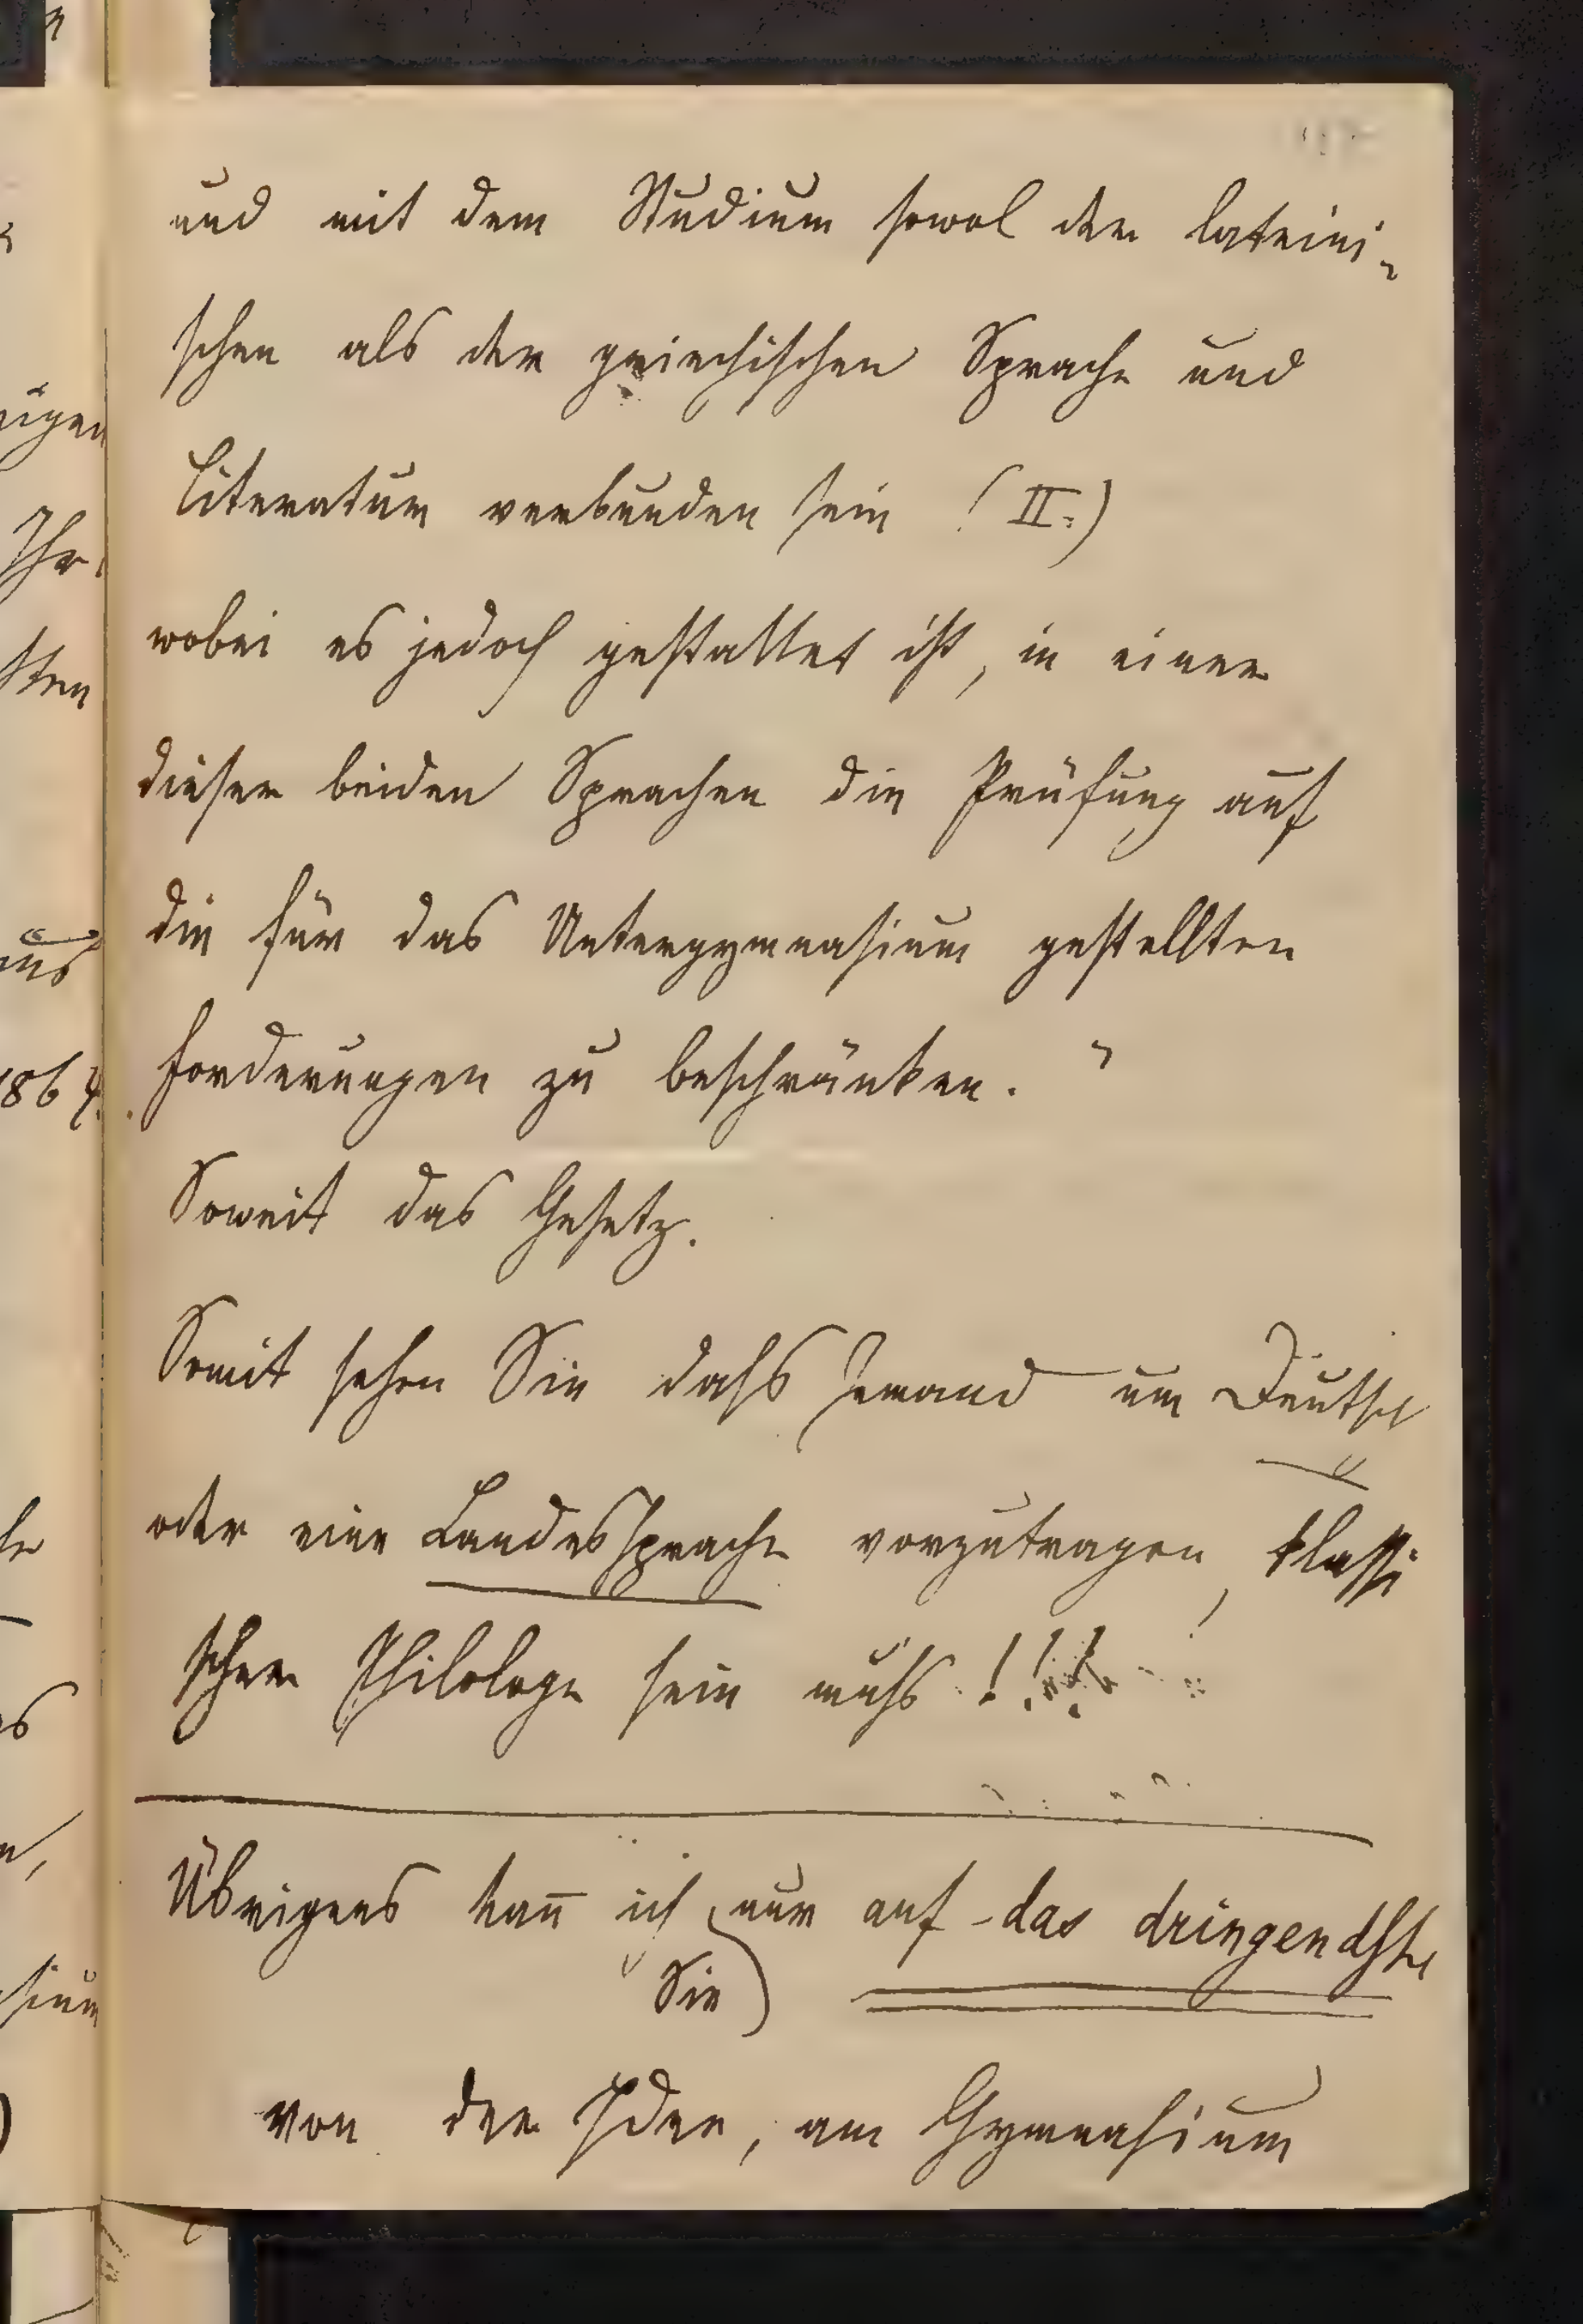 und mit dem Studium sowol der lateini-
schen als der griechischen Sprache und
Literatur verbunden sein (II.)
wobei es jedoch gestattet ist, in einer
dieser beiden Sprachen die Prüfung auf
die für das Untergymnasium gestellten
Forderungen zu beschränken. "
Soweit das Gesetz.
Somit sehen Sie dass Jemand um Deutsch
oder eine Landessprache vorzutragen, klassi
scher Philologe sein muss !!!
Übrigens kan̄ ich nur auf das dringendste
Sie
von der Idee, am Gymnasium